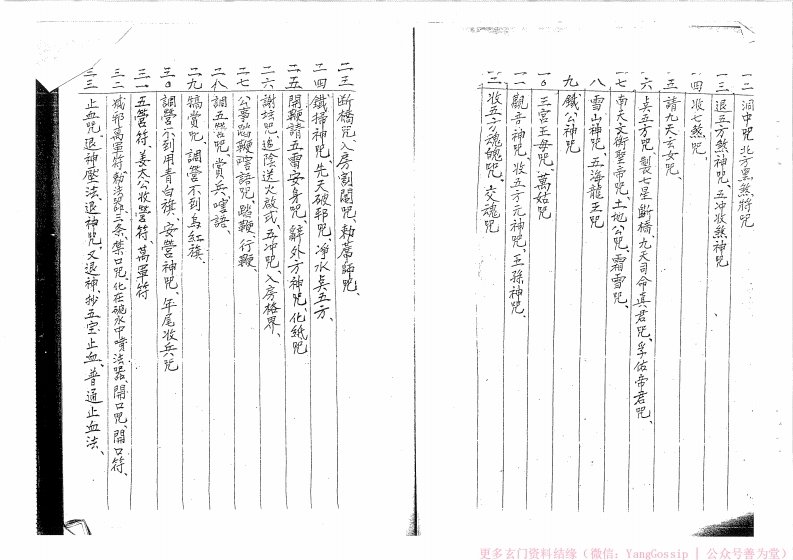 一二 洞中咒、北方黑煞將咒
一三 退五方煞神咒、五冲收煞神咒
一四 收七煞咒、
一五 請九天玄女咒、
一六 貞五方咒、製七星斷橋、九天司命真君咒、孚佑帝君咒、
一七 南天文衡聖帝咒、土地公咒、霜雪咒、
一八 雪山神咒、五海龍王咒
一九 鐵公神咒
二0 三宮王母咒、萬姑咒
二一 觀音神咒、收五方元神咒、王孫神咒、
二二 收五方魂魄咒、交魂咒
二三 斷橋咒、入房割鬮咒、勅蓆師咒、
二四 鐵掃神咒、先天破邪咒、淨水貞五方、
二五 開鞭請五雷安身咒、辭外方神咒、化紙咒
二六 謝坛咒、追陰送火啟式、五冲咒、入房格界、
二七 公事踏鞭喑語咒、踏鞭行鞭、
二八 調五營咒、賞兵喑語、
二九 犒賞咒、調營不到烏紅旗、
三0 調營不到用青白旗、安營神咒、年尾收兵咒
三一 五營符、姜太公收營符、萬軍符
三二 滅邪萬軍符、勅法器三条、禁口咒、化在碗水中噴法器、開口咒、開口符、
三三 止血咒、退神壓法、退神咒、又退神、抄五宝止血、普通止血法、
更多玄门资料结缘（微信：YangGossip | 公众号善为堂）